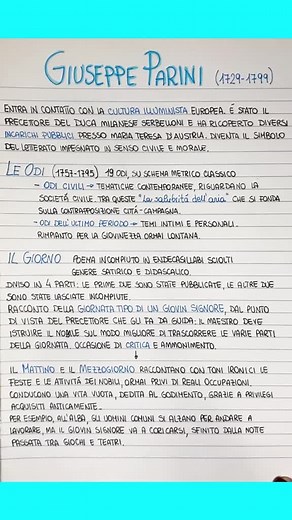 GIUSEPPE PARINI (1729-1799)
ENTRA IN CONTATTO CON LA CULTURA ILLUMINISTA EUROPEA. È STATO IL
PRECETORE DEL DUCA MILANESE SERBELLONI E HA RICOPERTO DIVERSI
INCARICHI PUBBLICI PRESSO MARIA TERESA D'AUSTRIA. DIVENTA IL SIMBOLO
DEL LETTERATO IMPEGNATO IN SENSO CIVILE E MORALE.
LE ODI (1757-1795) 19 ODI, SU SCHEMA METRICO CLASSICO
- ODI CIVILI → TEMATICHE CONTEMPORANEE, RIGUARDANO LA
SOCIETÀ CIVILE. TRA QUESTE "La salubrità dell'aria" CHE SI FONDA
SULLA CONTRAPPOSIZIONE CITTÀ-CAMPAGNA.
- ODI DELL'ULTIMO PERIODO → TEMI INTIMI E PERSONALI.
RIMPIANTO PER LA GIOVINEZZA ORMAI LONTANA.
IL GIORNO POEMA INCOMPIUTO IN ENDECASILLABI SCIOLTI
GENERE SATIRICO E DIDASCALICO.
DIVISO IN 4 PARTI: LE PRIME DUE SONO STATE PUBBLICATE, LE ALTRE DUE
SONO STATE LASCIATE INCOMPIUTE.
RACCONTO DELLA GIORNATA TIPO DI UN GIOVIN SIGNORE, DAL PUNTO
DI VISTA DEL PRECETTORE CHE GLI FA DA GUIDA: IL MAESTRO DEVE
ISTRUIRE IL NOBILE SUL MODO MIGLIORE DI TRASCORRERE LE VARIE PARTI
DELLA GIORNATA. OCCASIONE DI CRITICA E AMMONIMENTO.
IL MATTINO E IL MEZZOGIORNO RACCONTANO CON TONI IRONICI LE
FESTE E LE ATTIVITÀ DEI NOBILI, ORMAI PRIVI DI REALI OCCUPAZIONI.
CONDUCONO UNA VITA VUOTA, DEDITA AL GODIMENTO, GRAZIE A PRIVILEGI
ACQUISITI ANTICAMENTE.
PER ESEMPIO, ALL'ALBA, GLI UOMINI COMUNI SI ALZANO PER ANDARE A
LAVORARE, MA IL GIOVIN SIGNORE VA A CORICARSI, SFINITO DALLA NOTTE
PASSATA TRA GIOCHI E TEATRI.